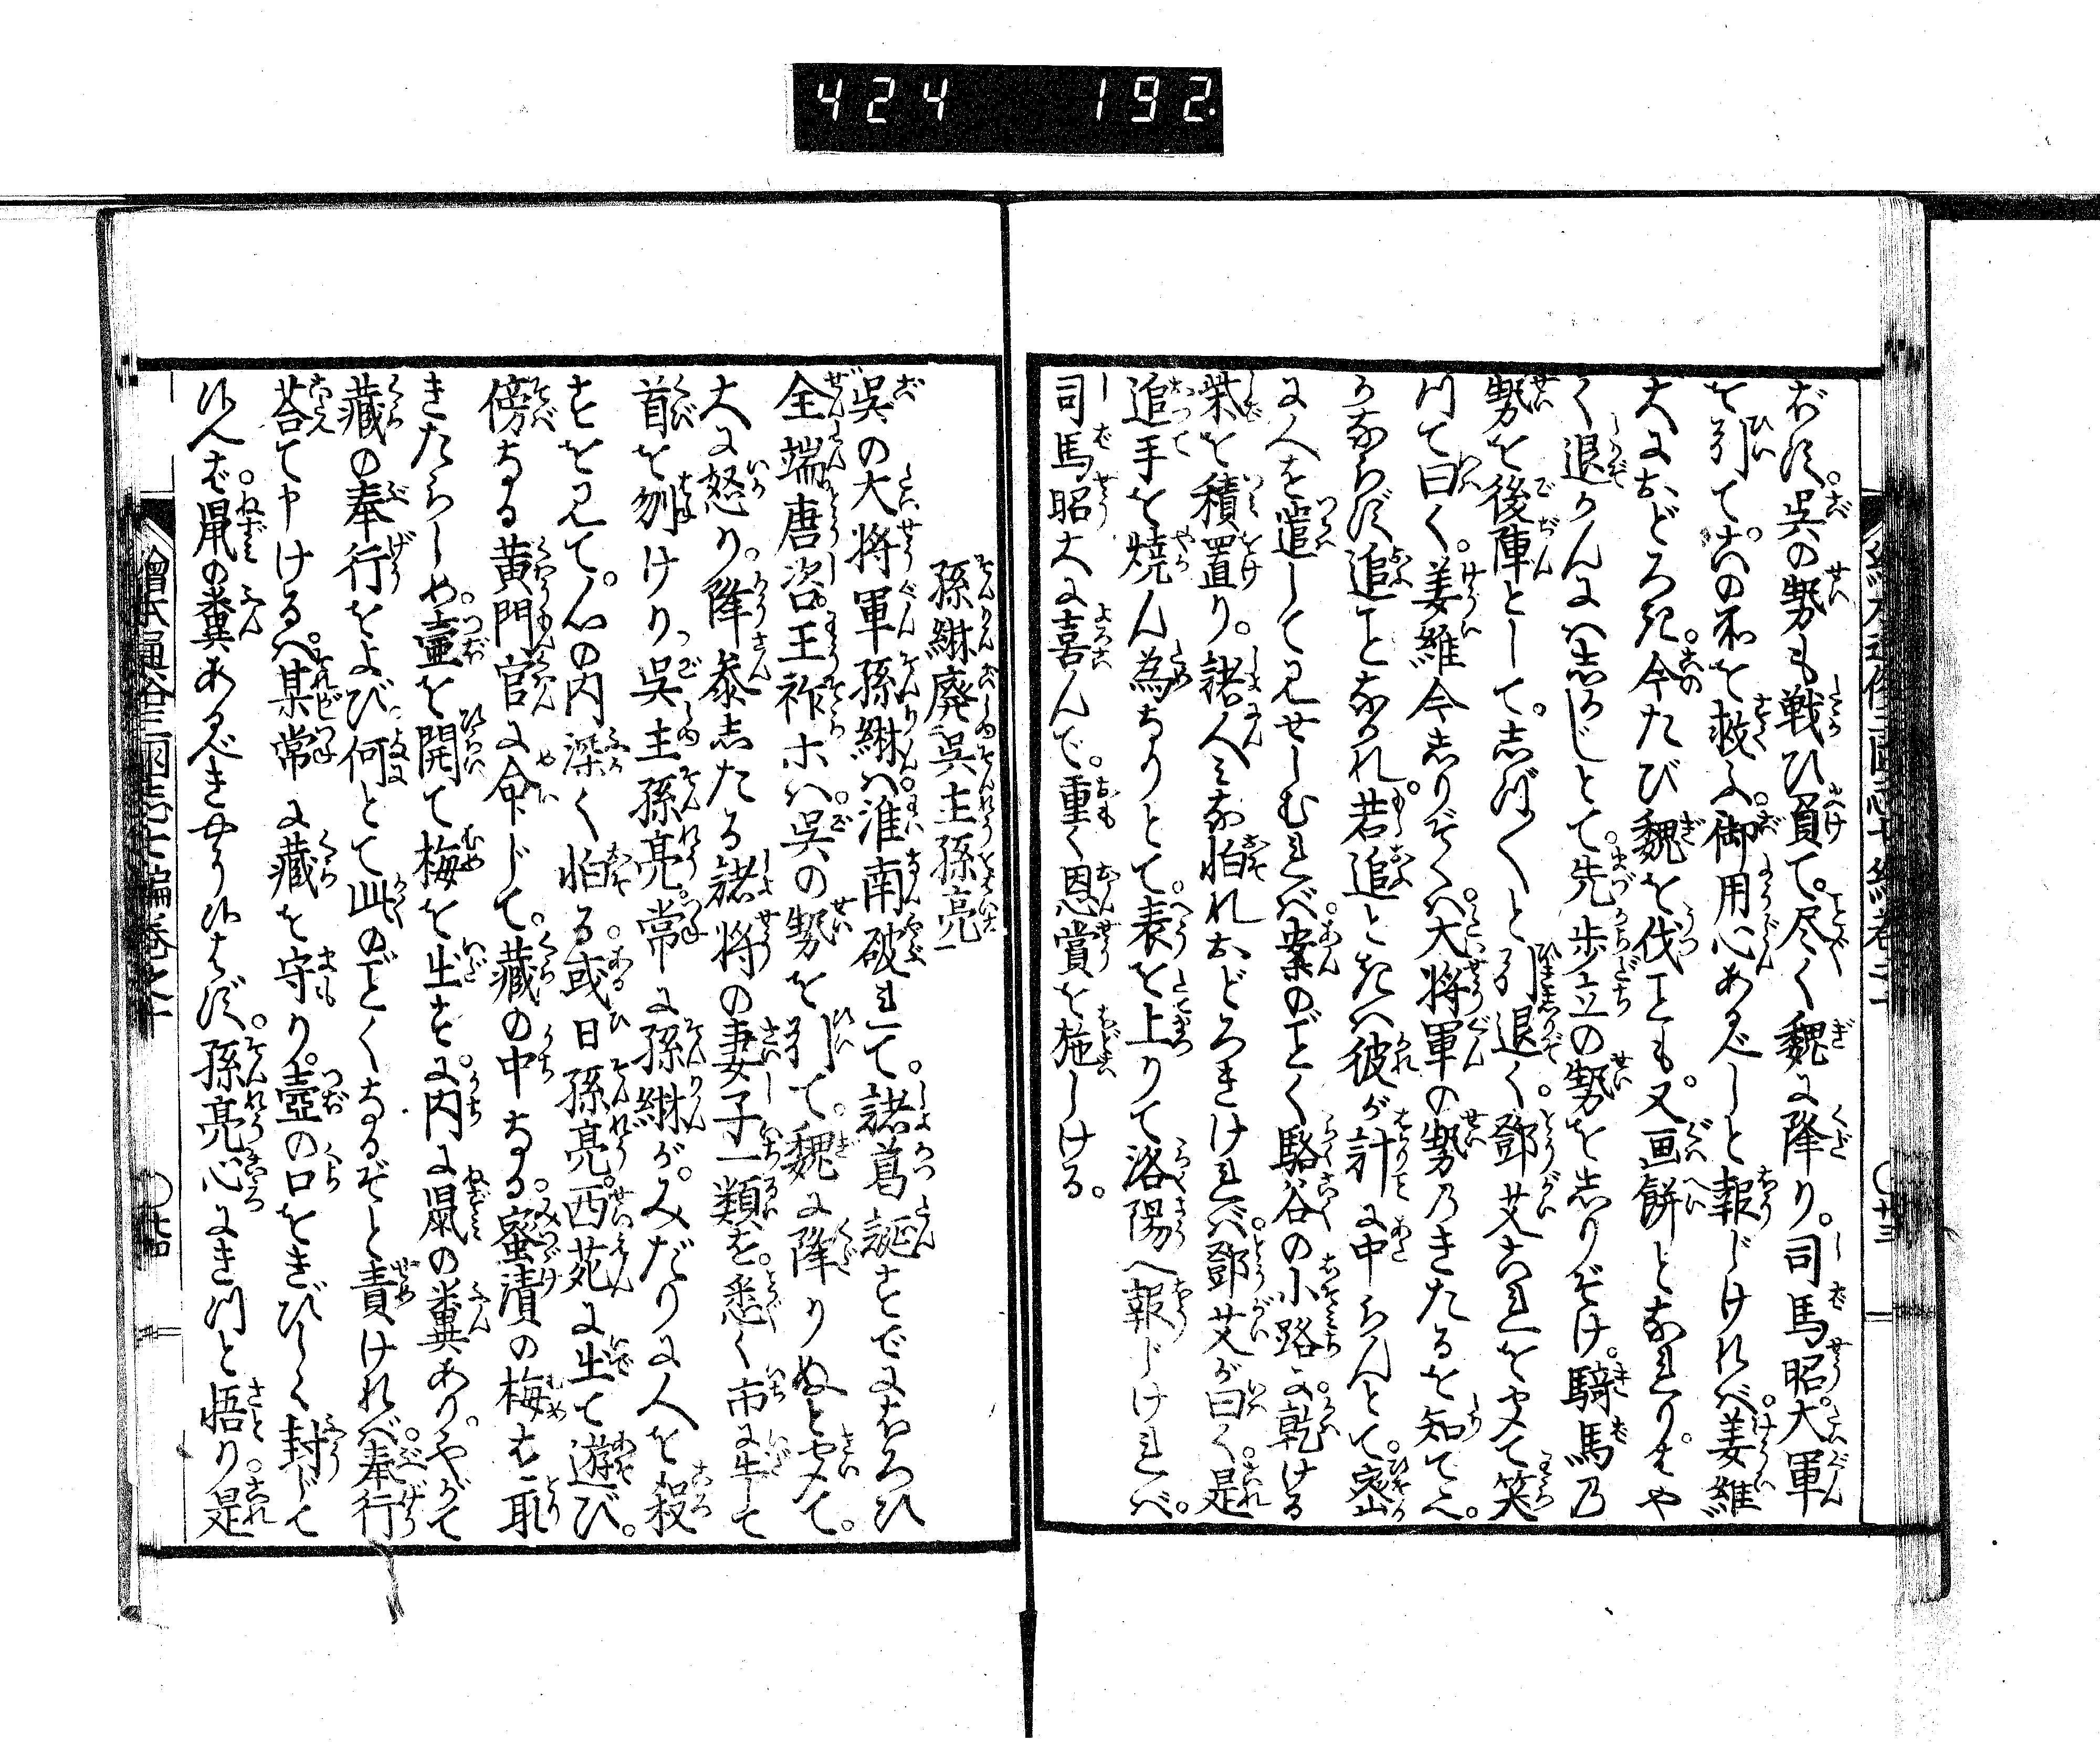 424 192.
ぼす。呉の勢も戦ひ負て。尽く魏に降り。司馬昭。大軍
を引て。此の不を救ふ。御用心あるべしと報じければ。姜維
大におどろき。今たび魏を伐ことも。又画餅となれり。はや
く退かんにはしかじとて。先歩立の勢をしりぞけ。騎馬の
勢を後陣として。しづ〱と引退く。鄧艾これをきいて笑
つて曰く。姜維今しりぞくは。大将軍の勢のきたるを知てそ。
かならず追ことなかれ。若追ときは彼が計に中らんとて。密
に人を遣して見せしむれば。案のごとく駱谷の小路に。乾ける
柴を積置り。諸人みな怕れおどろきければ。鄧艾が曰く。是
追手を焼ん為なりとて。表を上りて洛陽へ報じければ。
司馬昭大に喜んで。重く恩賞を施しける。
孫綝廃呉主孫亮
呉の大将軍孫綝は。淮南破れて。諸葛誕すでにおろひ
全端唐咨。王祚ホは。呉の勢を引て。魏に降りぬときいて。
大に怒り。降参したる諸将の妻子一類を。悉く市に牛して
首を刎けり。呉主孫亮。常に孫綝が。みだりに人を殺
すを見て。心の内深く怕る。或日孫亮。西苑に出て遊び。
傍なる黄門官に命じて。蔵の中なる。蜜漬の梅を取
きたらしめ。壷を開て梅を出すに。内に鼠の糞あり。やがて
蔵の奉行をよび何とて此のごとくなるぞと責ければ。奉行
荅て申けるは。某常に蔵を守り。壺の口をきびしく封じて
候へば。鼠の糞あるべきやう候はず。孫亮心にきつと悟り。是